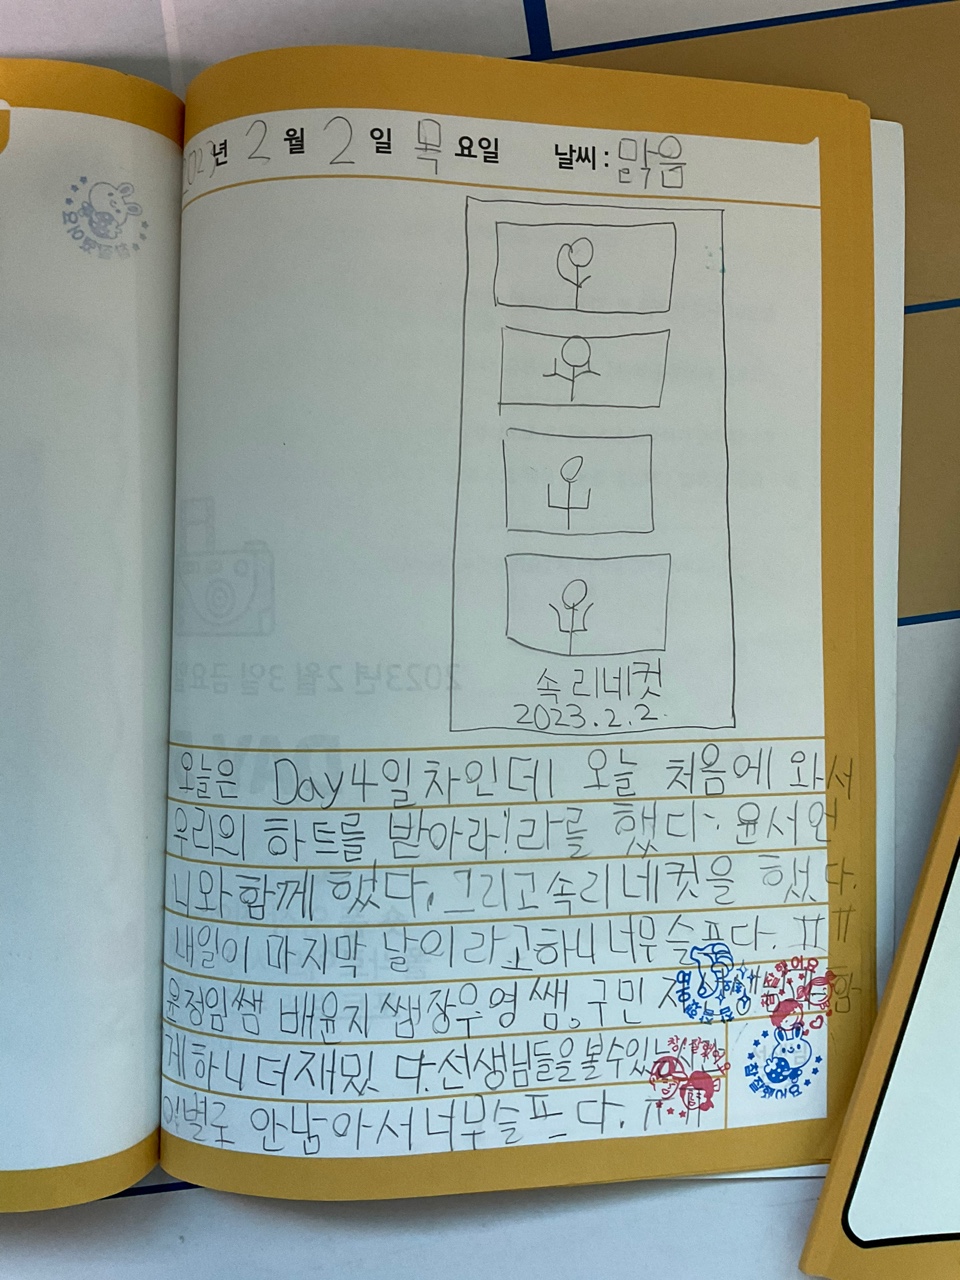 2023년 2월 2일 목요일 날씨: 맑음
속리네컷
2023.2.2.
오늘은 Day4일차인데 오늘 처음에 와서
우리의 하트를 받아라!라를 했다. 윤서언
니와 함께 했다. 그리고 속리네컷을 했다.
내일이 마지막 날이라고하니 너무 슬프다. ㅠㅠ
윤정임쌤 배윤지 쌤 장우영 쌤. 구민 함
께하니 더 재밌 다. 선생님들을 볼수있는
이별로 안남아서 너무 슬프다. ㅠㅠ
2023년 2월 3일 금요일